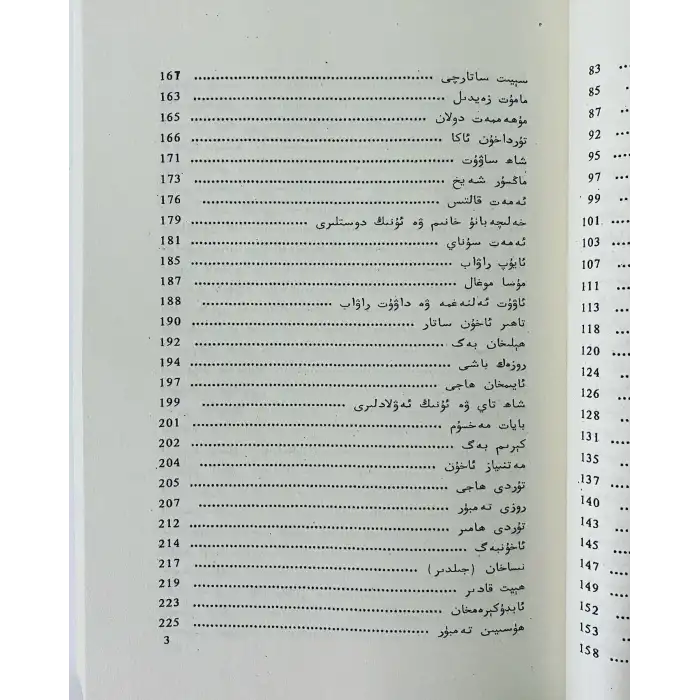 سېيىت ساتارچى ........ 167
مامۇت زەيدىل ........ 163
مۇھەممەت دولان ........ 165
تۇرداخۇن ئاكا ........ 166
شاھ ساۋۇت ........ 171
ماڭسۇر شەيخ ........ 173
ئەمەت قالتىس ........ 176
خەلچەبانۇ خانىم ۋە ئۇنىڭ دوستلىرى 179
ئەمەت سۇناي ........ 181
ئايۇپ راۋاب ........ 185
مۇسا موغال ........ 187
ئاۋۇت ئەلنەغمە ۋە داۋۇت راۋاب ........ 188
تاھىر ئاخۇن ساتار ........ 190
ھېلىخان بەگ ........ 192
روزەك باشى ........ 194
ئايىمخان ھاجى ........ 197
شاھ تاي ۋە ئۇنىڭ ئەۋلادلىرى ........ 199
بايات مەخسۇم ........ 201
كېرىم بەگ ........ 202
مەتنىياز ئاخۇن ........ 204
تۇردى ھاجى ........ 205
روزى تەمبۇر ........ 207
تۇردى ھامىر ........ 212
ئاخۇنبەگ ........ 214
نىساخان (جىلدىر) ........ 217
ھېيت قادىر ........ 219
ئابدۇكېرەمخان ........ 223
ھۈسىيىن تەمبۇر ........ 225
3
83
85
87
92
95
97
99
101
103
107
111
113
118
120
124
126
128
131
135
137
140
143
145
147
149
152
153
158